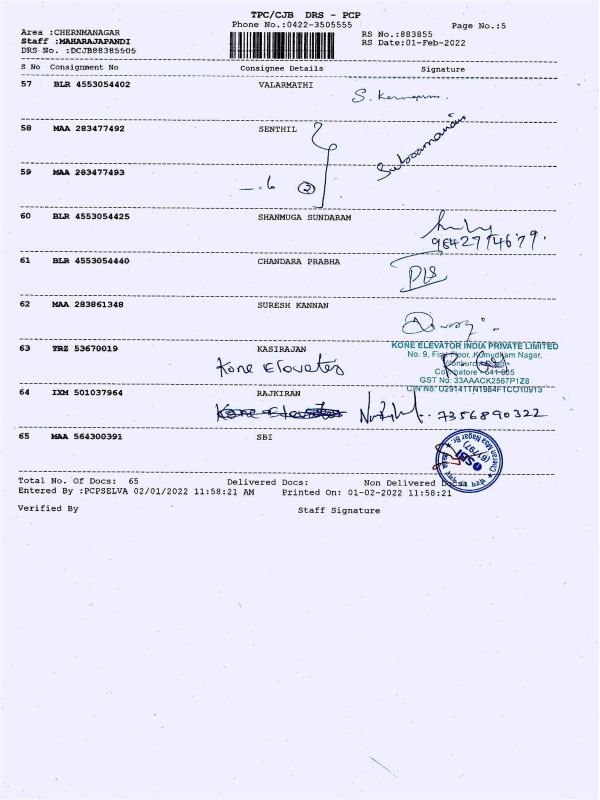 TPC/CJB DRS - PCP
Phone No.:0422-3505555
Page No.:5
Area :CHERNMANAGAR
Staff :MAHARAJAPANDI
DRS No. :DCJB88385505
RS No.:883855
RS Date:01-Feb-2022
S No Consignment No Consignee Details Signature
57 BLR 4553054402 VALARMATHI
58 MAA 283477492 SENTHIL
59 MAA 283477493
60 BLR 4553054425 SHANMUGA SUNDARAM
61 BLR 4553054440 CHANDARA PRABHA
62 MAA 283861348 SURESH KANNAN
63 TRZ 53670019 KASIRAJAN
Kone Elevator
KONE ELEVATOR INDIA PRIVATE LIMITED
No. 9, First Floor, Kumudham Nagar,
Coimbatore - 641 035
GST No: 33AAACK2567P1Z8
64 IXM 501037964 RAJKIRAN
Kone Elevator
7356890322
65 MAA 564300391 SBI
SBI
Total No. Of Docs: 65 Delivered Docs: Non Delivered Docs:
Entered By :PCPSELVA 02/01/2022 11:58:21 AM Printed On: 01-02-2022 11:58:21
Verified By Staff Signature